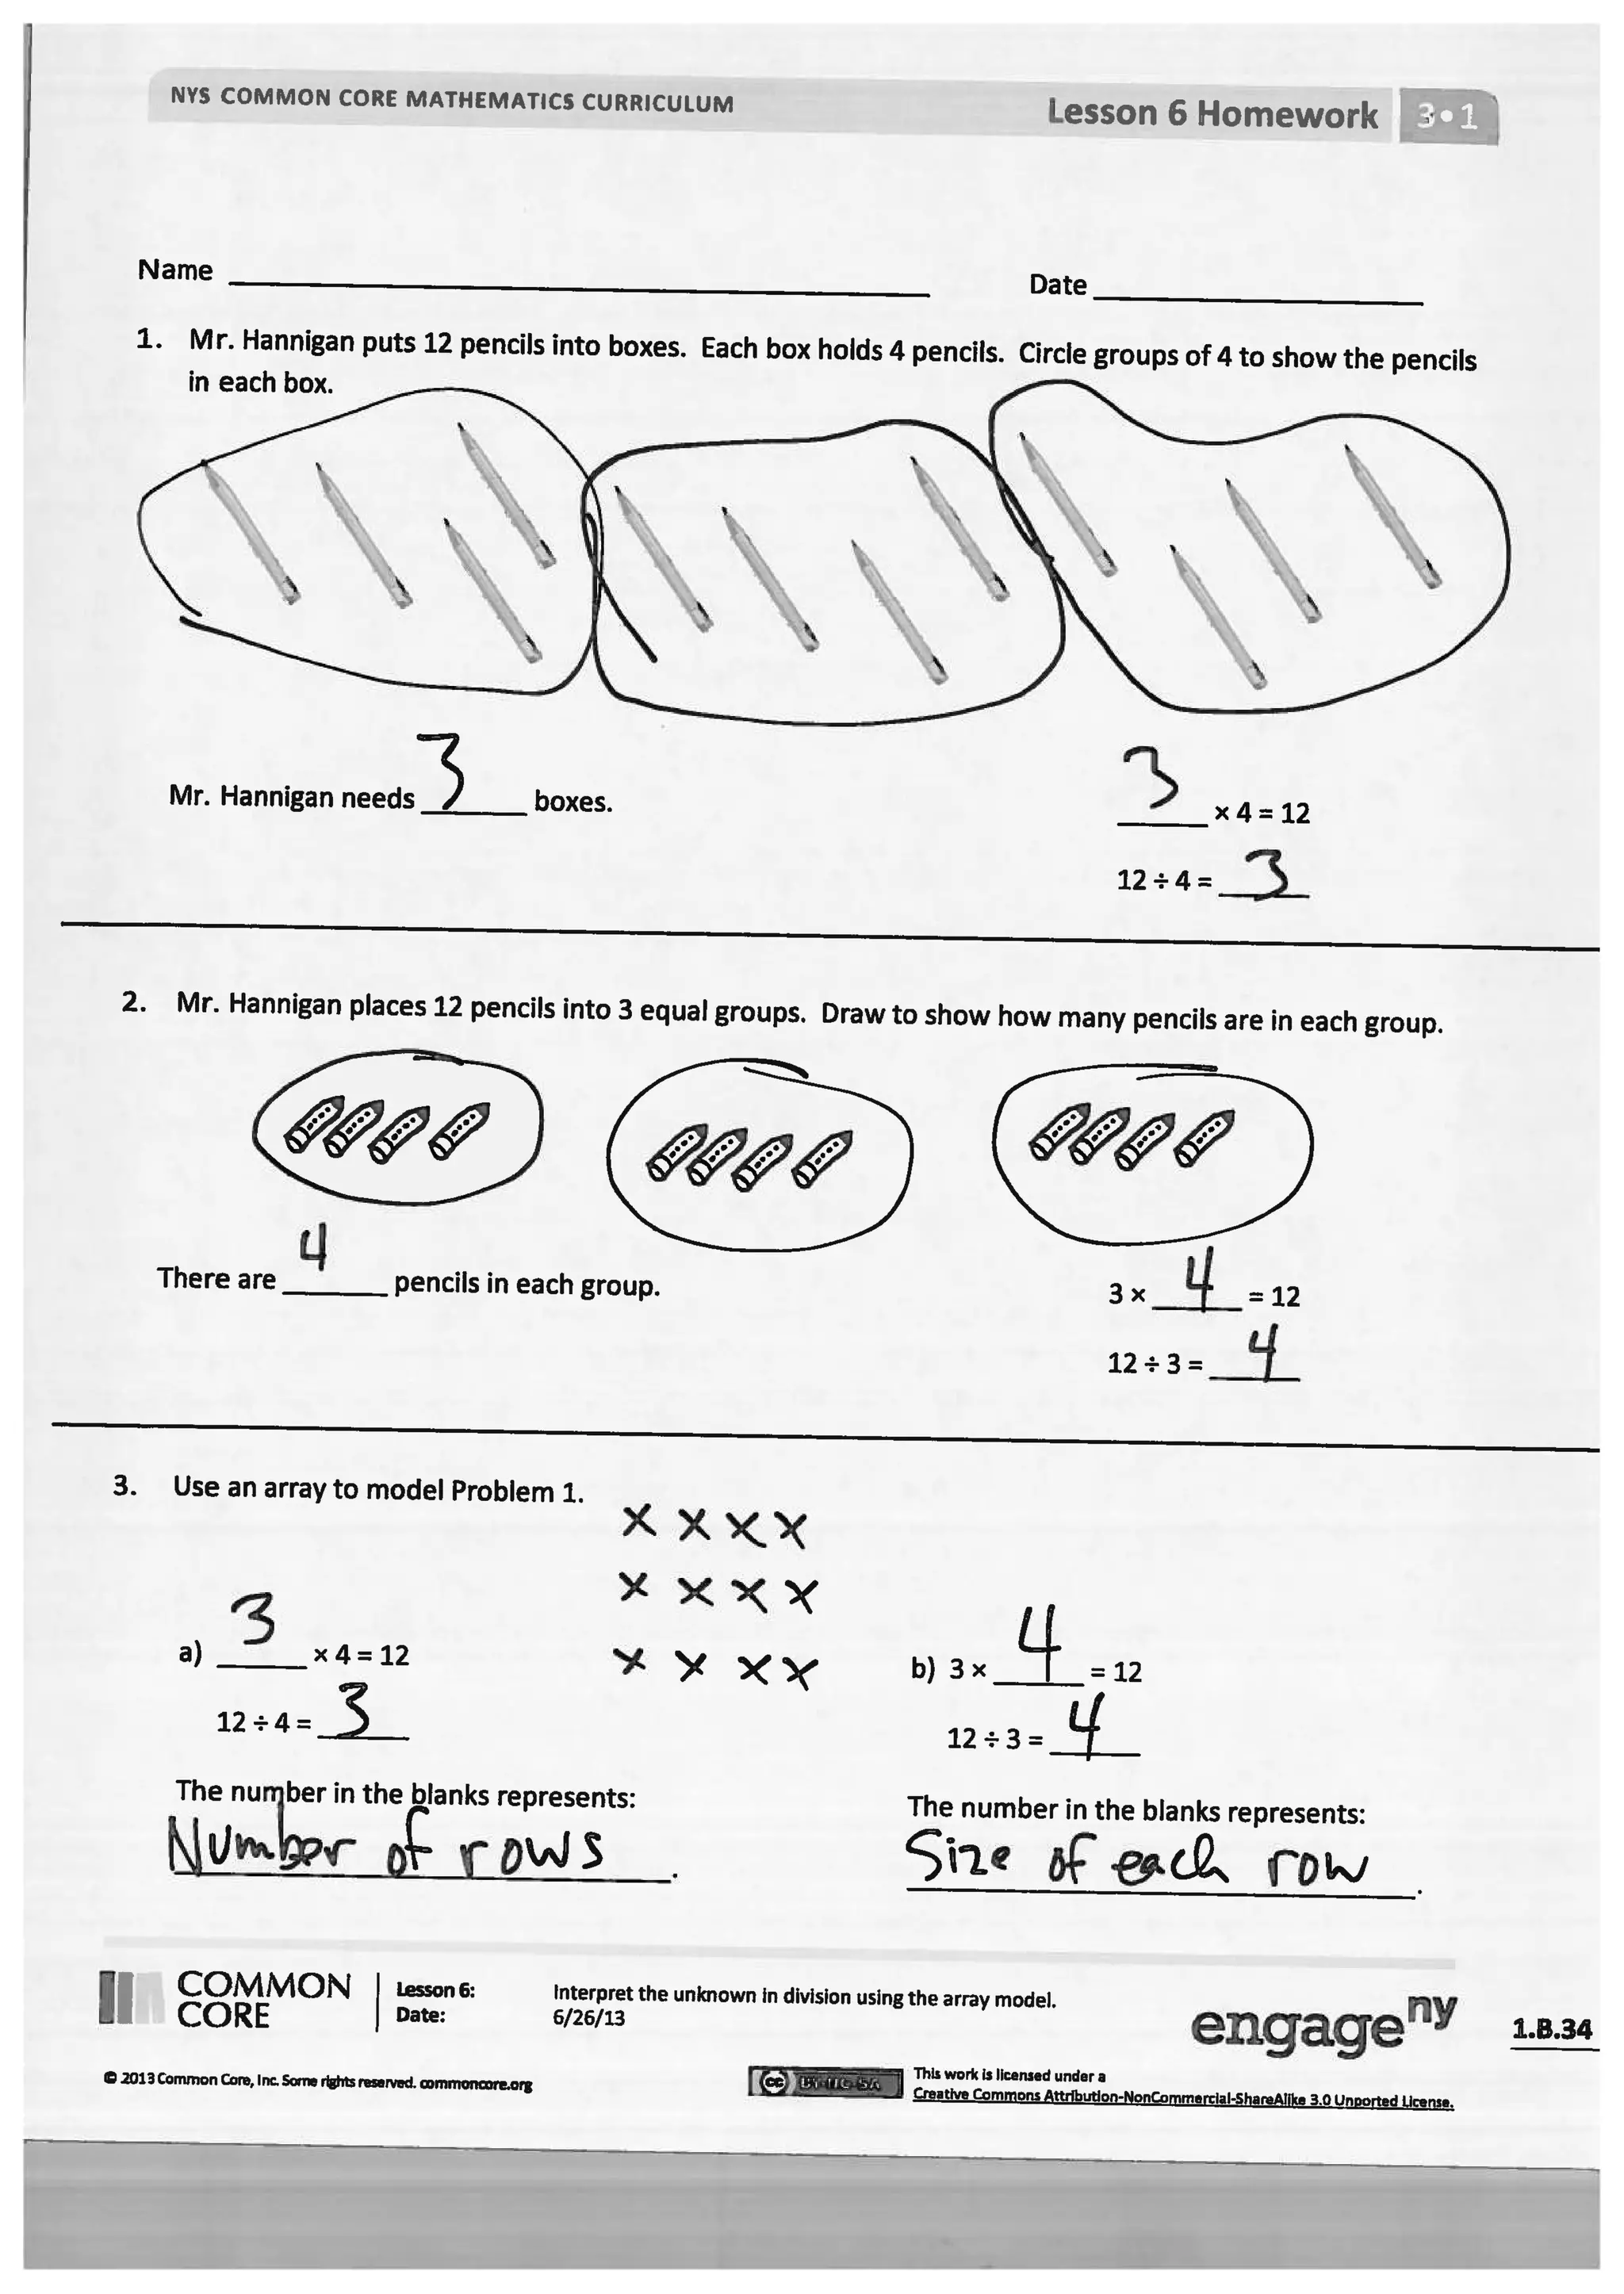 NYS COMMON CORE MATHEMATICS CURRICULUM
Lesson 6 Homework 3•1
Name
Date
1. Mr. Hannigan puts 12 pencils into boxes. Each box holds 4 pencils. Circle groups of 4 to show the pencils
in each box.
Mr. Hannigan needs 3 boxes.
3 × 4 = 12
12 ÷ 4 = 3
2. Mr. Hannigan places 12 pencils into 3 equal groups. Draw to show how many pencils are in each group.
There are 4 pencils in each group.
3 × 4 = 12
12 ÷ 3 = 4
3. Use an array to model Problem 1.
x x x x
x x x x
x x x x
a) 3 × 4 = 12
12 ÷ 4 = 3
The number in the blanks represents:
Number of rows.
b) 3 × 4 = 12
12 ÷ 3 = 4
The number in the blanks represents:
Size of each row.
COMMON
CORE
Lesson 6: Interpret the unknown in division using the array model.
Date: 6/26/13
engage ny
1.B.34
© 2013 Common Core, Inc. Some rights reserved. commoncore.org
cc BY-NC-SA
This work is licensed under a
Creative Commons Attribution-NonCommercial-ShareAlike 3.0 Unported License.